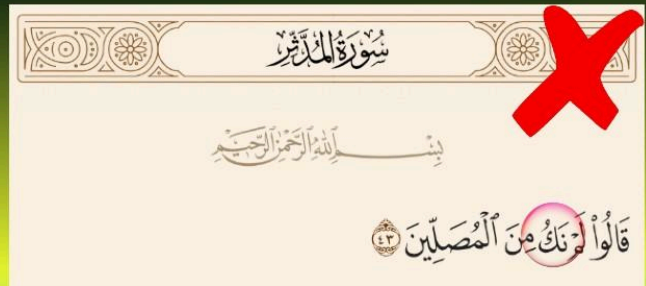 سُورَةُ المُدَّثِّرِ
بِسْمِ ٱللَّهِ ٱلرَّحْمَٰنِ ٱلرَّحِيمِ
قَالُواْ لَمْ نَكُ مِنَ ٱلْمُصَلِّينَ ٤٣